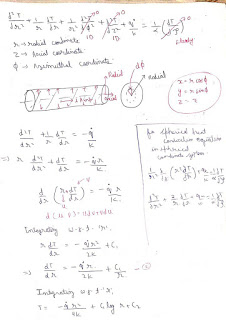 d²T/dr² + 1/r dT/dr + 1/r² d²T/dφ² + d²T/dz² + q̇/k = 1/α (dT/dτ)
r → radial coordinate
z → axial coordinate
φ → Azimuthal coordinate
radial
dφ
x = r cosφ
y = r sinφ
z = z
d²T/dr² + 1/r dT/dr = -q̇/k
⇒ r d²T/dr² + dT/dr = -q̇/k r
d/dr (r dT/dr) = -q̇ r/k
d(u.v) = udv + vdu
Integrating w.r.t. 'r'.
r dT/dr = -q̇r²/2k + C₁
⇒ dT/dr = -q̇r/2k + C₁/r
Integrating w.r.t 'r',
T = -q̇r²/4k + C₁ log r + C₂
for spherical heat
conduction equation
in spherical
coordinate system